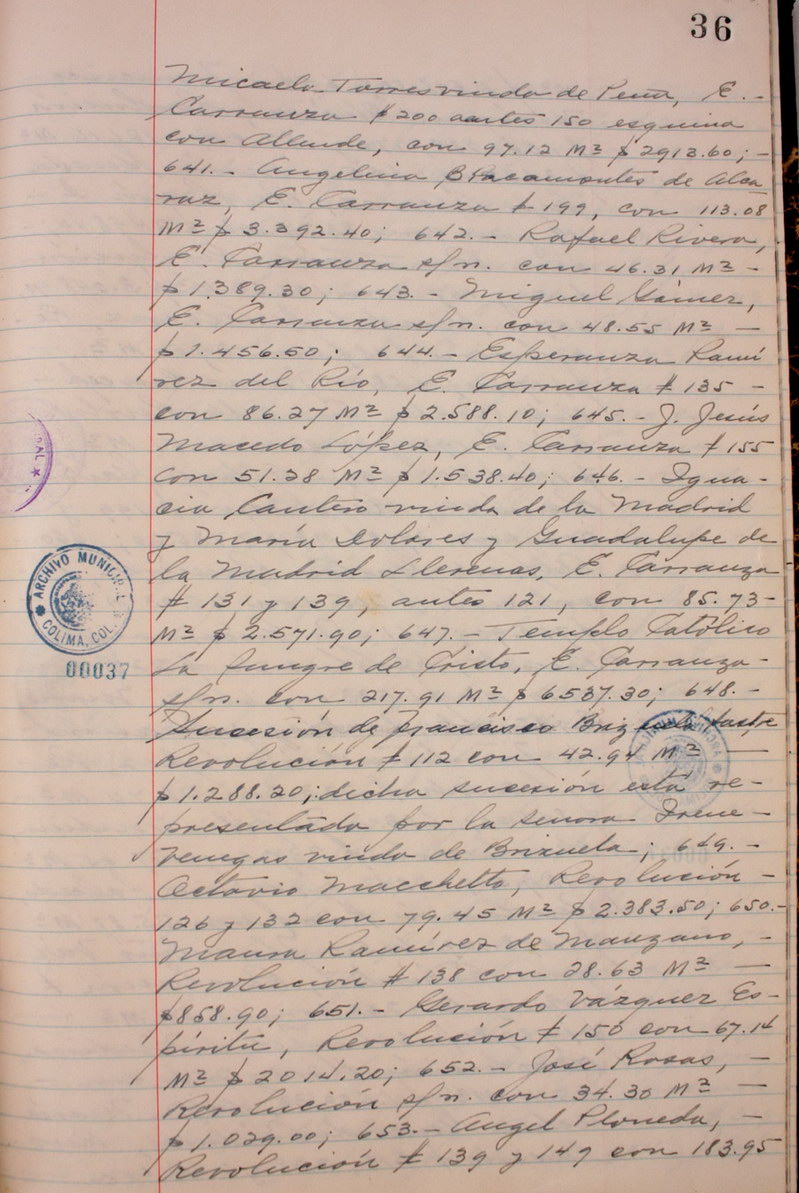 36
Micaela Torres viuda de Peña, E. -
Carranza # 200 antes 150 esquina
con Allende, con 97.12 M² $ 2913.60; -
641.- Angelina Bracamontes de Alca
raz, E. Carranza # 199, con 113.08
M² $ 3.392.40; 642.- Rafael Rivera,
E. Carranza s/n. con 46.31 M² -
$ 1.389.30; 643.- Miguel Gámez,
E. Carranza s/n. con 48.55 M² —
$ 1.456.50; 644.- Esperanza Ramí
rez del Río, E. Carranza # 135 -
con 86.27 M² $ 2.588.10; 645.- J. Jesús
Macedo López, E. Carranza # 155
con 51.28 M² $ 1.538.40; 646.- Igna-
cia Cantero viuda de la Madrid
y María Dolores y Guadalupe de
la Madrid Llerenas, E. Carranza
# 131 y 139, antes 121, con 85.73-
M² $ 2.571.90; 647.- Templo Católico
La Sangre de Cristo, E. Carranza-
s/n. con 217.91 M² $ 6537.30; 648.-
Sucesión de Francisco Briz
Revolución # 112 con 42.94 M² —
$ 1.288.20; dicha sucesión está re-
presentada por la señora Irene-
Venegas viuda de Brizuela; 649.-
Octavio Macchetto, Revolución -
126 y 132 con 79.45 M² $ 2.383.50; 650.-
Maura Ramírez de Manzano, -
Revolución # 138 con 28.63 M² —
$858.90; 651.- Gerardo Vázquez Es-
píritu, Revolución # 150 con 67.14
M² $ 2014.20; 652.- José Rosas, -
Revolución s/n. con 34.30 M² —
$ 1.029.00; 653.- Angel Ploneda, -
Revolución # 139 y 149 con 183.95
ARCHIVO MUNICIPAL
COLIMA, COL.
00037